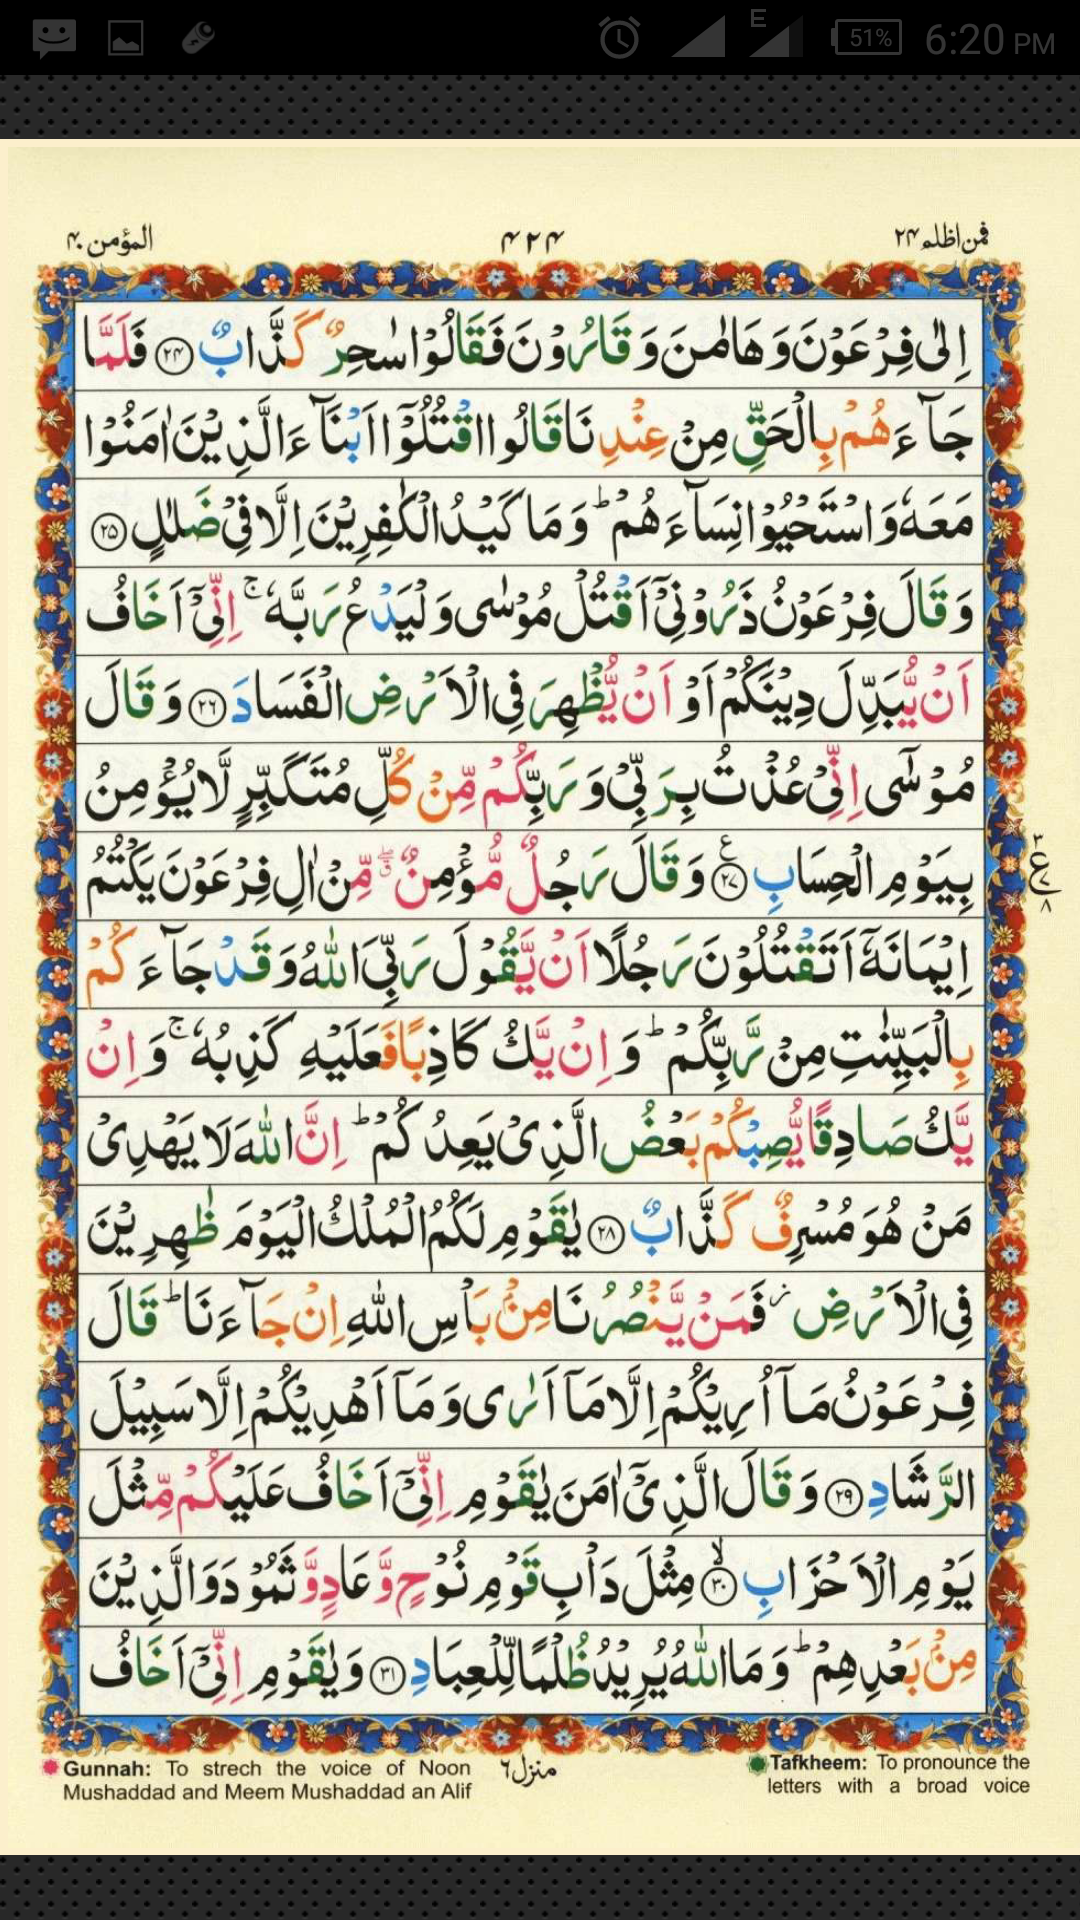 51% 6:20 PM
E
المؤمن ۴۰ ۴۲۴ فمن اظلم ۲۴
اِلٰى فِرْعَوْنَ وَهَامٰنَ وَقَارُوْنَ فَقَالُوْا سٰحِرٌ كَذَّابٌ ﴿۲۴﴾ فَلَمَّا
جَآءَهُمْ بِالْحَقِّ مِنْ عِنْدِنَا قَالُوا اقْتُلُوْٓا اَبْنَآءَ الَّذِيْنَ اٰمَنُوْا
مَعَهٗ وَاسْتَحْيُوْا نِسَآءَهُمْ ؕ وَمَا كَيْدُ الْكٰفِرِيْنَ اِلَّا فِيْ ضَلٰلٍ ﴿۲۵﴾
وَقَالَ فِرْعَوْنُ ذَرُوْنِيْٓ اَقْتُلْ مُوْسٰى وَلْيَدْعُ رَبَّهٗ ۚ اِنِّيْٓ اَخَافُ
اَنْ يُّبَدِّلَ دِيْنَكُمْ اَوْ اَنْ يُّظْهِرَ فِي الْاَرْضِ الْفَسَادَ ﴿۲۶﴾ وَقَالَ
مُوْسٰٓى اِنِّيْ عُذْتُ بِرَبِّيْ وَرَبِّكُمْ مِّنْ كُلِّ مُتَكَبِّرٍ لَّا يُؤْمِنُ
بِيَوْمِ الْحِسَابِ ﴿۲۷﴾ ع وَقَالَ رَجُلٌ مُّؤْمِنٌ ۖ ق مِّنْ اٰلِ فِرْعَوْنَ يَكْتُمُ
۳ ع ۷ ۸
اِيْمَانَهٗٓ اَتَقْتُلُوْنَ رَجُلًا اَنْ يَّقُوْلَ رَبِّيَ اللّٰهُ وَقَدْ جَآءَكُمْ
بِالْبَيِّنٰتِ مِنْ رَّبِّكُمْ ؕ وَاِنْ يَّكُ كَاذِبًا فَعَلَيْهِ كَذِبُهٗ ۚ وَاِنْ
يَّكُ صَادِقًا يُّصِبْكُمْ بَعْضُ الَّذِيْ يَعِدُكُمْ ؕ اِنَّ اللّٰهَ لَا يَهْدِيْ
مَنْ هُوَ مُسْرِفٌ كَذَّابٌ ﴿۲۸﴾ يٰقَوْمِ لَكُمُ الْمُلْكُ الْيَوْمَ ظٰهِرِيْنَ
فِي الْاَرْضِ ز فَمَنْ يَّنْصُرُنَا مِنْۢ بَاْسِ اللّٰهِ اِنْ جَآءَنَا ؕ قَالَ
فِرْعَوْنُ مَآ اُرِيْكُمْ اِلَّا مَآ اَرٰى وَمَآ اَهْدِيْكُمْ اِلَّا سَبِيْلَ
الرَّشَادِ ﴿۲۹﴾ وَقَالَ الَّذِيْٓ اٰمَنَ يٰقَوْمِ اِنِّيْٓ اَخَافُ عَلَيْكُمْ مِّثْلَ
يَوْمِ الْاَحْزَابِ ﴿۳۰﴾ ۙ مِثْلَ دَاْبِ قَوْمِ نُوْحٍ وَّعَادٍ وَّثَمُوْدَ وَالَّذِيْنَ
مِنْۢ بَعْدِهِمْ ؕ وَمَا اللّٰهُ يُرِيْدُ ظُلْمًا لِّلْعِبَادِ ﴿۳۱﴾ وَيٰقَوْمِ اِنِّيْٓ اَخَافُ
Gunnah: To strech the voice of Noon
Mushaddad and Meem Mushaddad an Alif
منزل ٦
Tafkheem: To pronounce the
letters with a broad voice